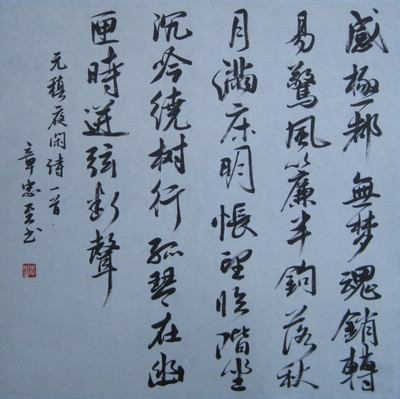 感極都無梦魂銷轉
易驚風簾半鈎落秋
月滿床明悵望临階坐
沉吟繞树行孤琴在幽
匣時迸弦断聲
元稹夜闲诗一首
章忠书